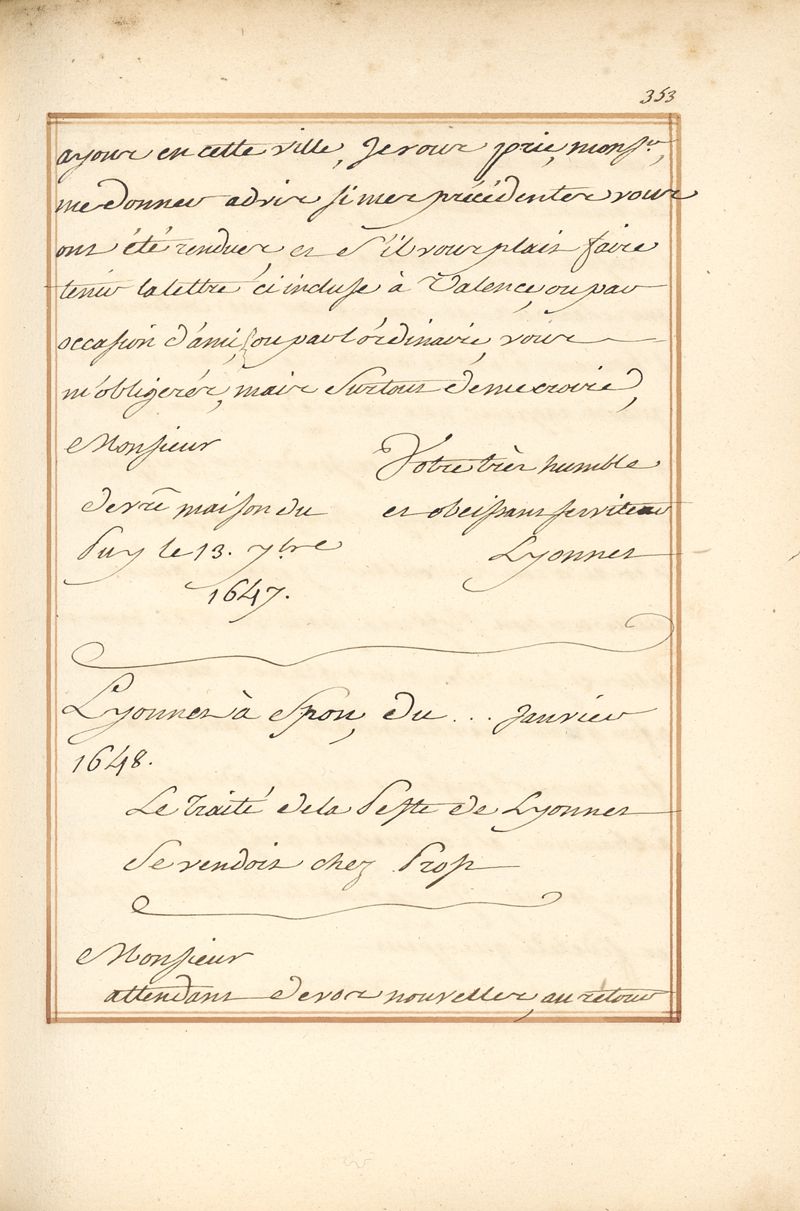 353
ayons en cette ville, Je vous prie, monsr,
me donner advis si mes précédentes vous
ont été rendues, et s'il vous plait faire
tenir la lettre ci incluse à Valence, ou par
occasion d'ami, ou par l'ordinaire, vous
m'obligerés, mais surtout de me croire,
Monsieur
Votre très humble
de vre maison du
et obeissant serviteur
Puy le 13. 7bre
Lyonnet
1647.
Lyonnet à Spon, du ... Janvier
1648.
Le Traité de la Peste de Lyonnet
se vendoit chez Prost
Monsieur
attendant de vos nouvelles, au retour